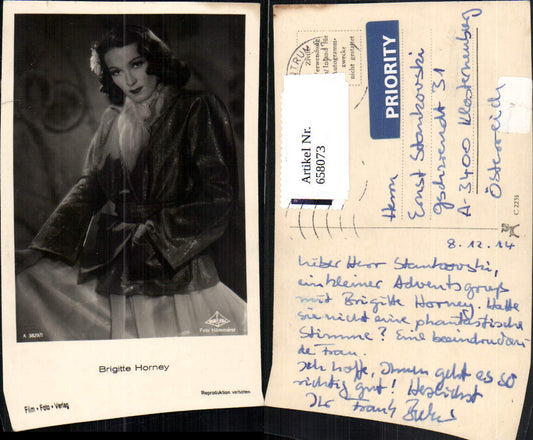 UFA
Foto Hämmerer
A 3829/1
Brigitte Horney
Reproduktion verboten
Film • Foto • Verlag
TRUM
nicht gestattet
PRIORITY
Artikel Nr.
658073
Herrn
Ernst Stankovski
Gschwendt 31
A-3400 Klosterneuburg
Österreich
C 2235
8.12.14
Lieber Herr Stankovski,
ein kleiner Adventsgruß
mit Brigitte Horney. Hatte
sie nicht eine phantastische
Stimme? Eine beeindrucken-
de Frau.
Ich hoffe, Ihnen geht es so
richtig gut! Herzlichst
Ihr Frank